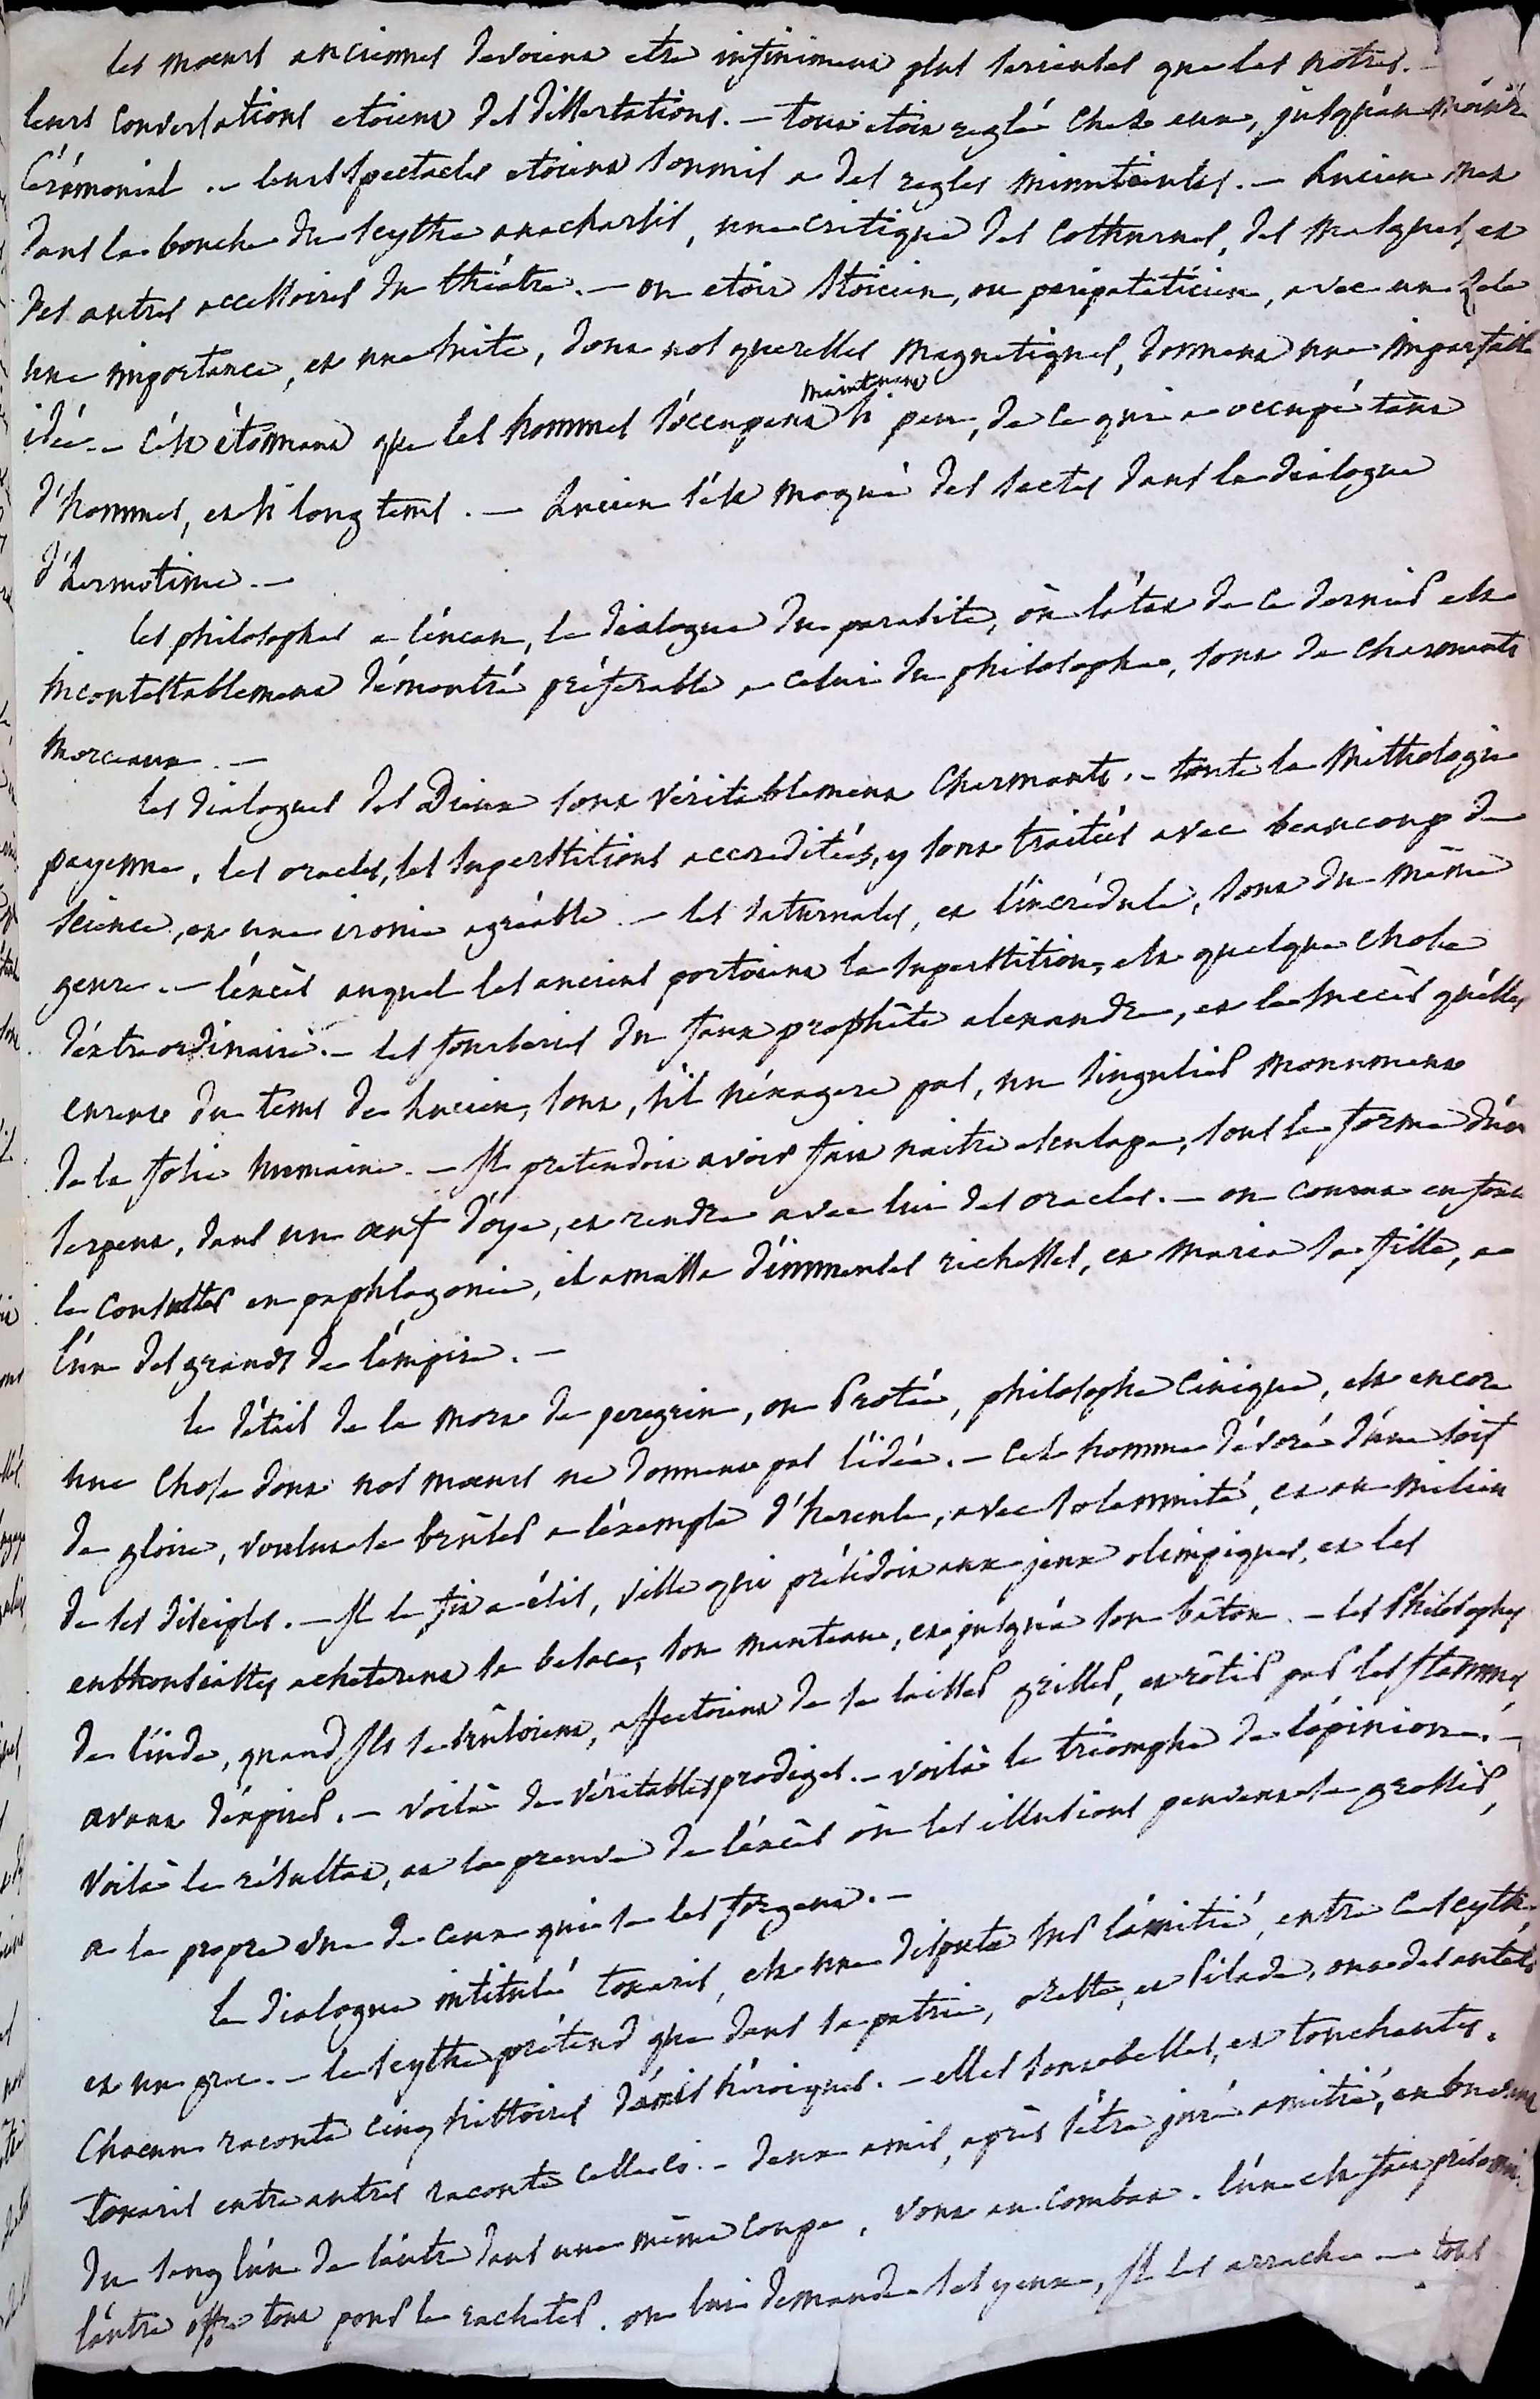 les mœurs anciennes devoient etre infiniment plus serieuses que les notres. —
leurs conversations etoient des dissertations. — tout etoit reglé chez eux, jusqu'au moindre
Cérémonial. — leurs spectacles etoient soumis a des regles minutieuses. — Lucien met
dans la bouche du scythe anacharsis, une critique des cothurnes, des masques, et
des autres accessoires du théatre. — on etoit stoicien, ou peripatéticien, avec un zele
une importance, et une suite, dont nos querelles magnetiques, donnent une imparfaite
idée. — c'est étonnant que les hommes s'occupent maintenant si peu, de ce qui a occupé tant
d'hommes, et si long tems. — Lucien s'est moqué des sectes dans le dialogue
d'hermotime. —
les philosophes a l'encan, le dialogue du parasite, où l'état de ce dernier est
incontestablement démontré préférable a celui du philosophe, sont de charmants
morceaux. —
les dialogues des Dieux sont véritablement charmants. — toute la mithologie
payenne, les oracles, les superstitions accreditées, y sont traités avec beaucoup de
science, et une ironie agréable. — les saturnales, et l'incrédule, sont du même
genre. — l'excès auquel les anciens portoient la superstition, est quelque chose
d'extraordinaire. — les fourberies du faux prophête alexandre, et le succès qu'elles
eurent du tems de Lucien, sont, s'il n'éxagere pas, un singulier monument
de la folie humaine. — Il pretendoit avoir fait naitre esculape, sous la forme d'un
serpent, dans un œuf d'oye, et rendre avec lui des oracles. — on courut en foule
le consulter en paphlagonie, il amassa d'immenses richesses, et maria sa fille, a
l'un des grands de l'empire. —
le détail de la mort de peregrin, ou Protée, philosophe cinique, est encore
une chose dont nos mœurs ne donnent pas l'idée. — cet homme dévoré d'une soif
de gloire, voulut se brûler a l'exemple d'hercule, avec solemnité, et au milieu
de ses disciples. — Il le fit a élis, ville qui présidoit aux jeux olimpiques, et les
enthousiastes acheterent sa besace, son manteau, et jusqu'à son bâton. — les Philosophes
de l'inde, quand Ils se brûloient, affectoient de se laisser griller, et rôtir par les flammes,
avant d'expirer. — voilà de véritables prodiges. — voilà le triomphe de l'opinion. —
voilà le résultat, et la preuve de l'excès où les illusions peuvent se grossir,
a la propre vue de ceux qui se les forgent. —
le dialogue intitulé toxaris, est une dispute sur l'amitié, entre ce scythe,
et un grec. — le scythe prétend que dans sa patrie, oreste, et Pilade, ont des autels
Chacun raconte cinq histoires d'amis héroiques. — elles sont belles, et touchantes.
toxaris entre autres raconte celle ci. — deux amis, après s'être juré amitié, en buvant
du sang l'un de l'autre dans une même coupe, vont au combat. l'un est fait prisonnier
l'autre offre tout pour le racheter. on lui demande ses yeux, Il les arrache — tous